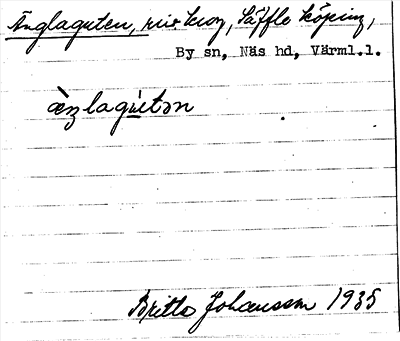 Änglaguten, riv kvoz, Säffle köping,
By sn, Näs hd, Värml.l.
æ̀ŋlagútən
Britta Johansson 1935